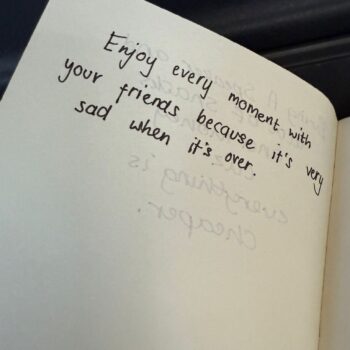 Enjoy every moment with
your friends, because it's very
sad when it's over.
everything is
cheaper.